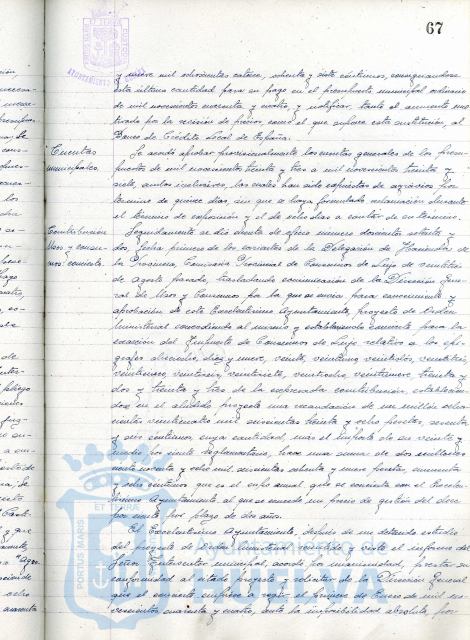 67
y nueve mil ochocientas catorce, ochenta y siete céntimos, consignándose
esta última cantidad para su pago en el presupuesto municipal ordinario
de mil novecientos cuarenta y cuatro, y notificar, tanto el aumento mo-
tivado por la revisión de precios, como el que supone esta sustitución, al
Banco de Crédito Local de España.
Cuentas
municipales.
Se acordó aprobar provisionalmente, las cuentas generales de los presu-
puestos de mil novecientos treinta y tres a mil novecientos treinta y
siete, ambos inclusives, las cuales han sido expuestas de agravios por
término de quince días, sin que se haya formulado reclamación durante
el término de exposición y el de ocho días a contar de su término.
Contribución
Usos y consu-
mos: concierto.
Seguidamente se dio cuenta de oficio número doscientos setenta y
dos, fecha primero de los corrientes de la Delegación de Hacienda de
la Provincia, Comisaría Provincial de Consumos de Lujo de veintitrés
de agosto pasado, trasladando comunicación de la Dirección Gene-
ral de Usos y Consumos por la que se envía, para conocimiento y
aprobación de este Excelentísimo Ayuntamiento, proyecto de Orden
Ministerial concediendo al mismo y estableciendo concierto para la
exacción del Impuesto de Consumos de Lujo relativos a los epí-
grafes dieciocho, diez y nueve, veinte, veintiuno, veintidós, veintitrés,
veinticinco, veintiséis, veintisiete, veintiocho, veintinueve, treinta y
dos y treinta y tres de la expresada contribución, establecién-
dose en el aludido proyecto una recaudación de un millón ocho-
cientas veinticuatro mil seiscientas treinta y ocho pesetas, sesenta
y seis céntimos, cuya cantidad, mas el importe de su veinte y
medio por ciento reglamentario, hace una suma de dos millones
ciento noventa y ocho mil seiscientas ochenta y nueve pesetas, cincuenta
y ocho céntimos que es el cupo anual que se concierta con el Excelen-
tísimo Ayuntamiento al que se concede, un precio de gestión del doce
por ciento por plazo de dos años.
El Excelentísimo Ayuntamiento, después de un detenido estudio
del proyecto de Orden Ministerial aludido y visto el informe del
Señor Interventor municipal, acordó por unanimidad, prestar su
conformidad al citado proyecto y solicitar de la Dirección General
que el concierto empiece a regir el primero de Enero de mil no-
vecientos cuarenta y cuatro, ante la imposibilidad absoluta, por
Ayuntamiento de
CHIPIONA
PORTUS MARIS
ET TERRA